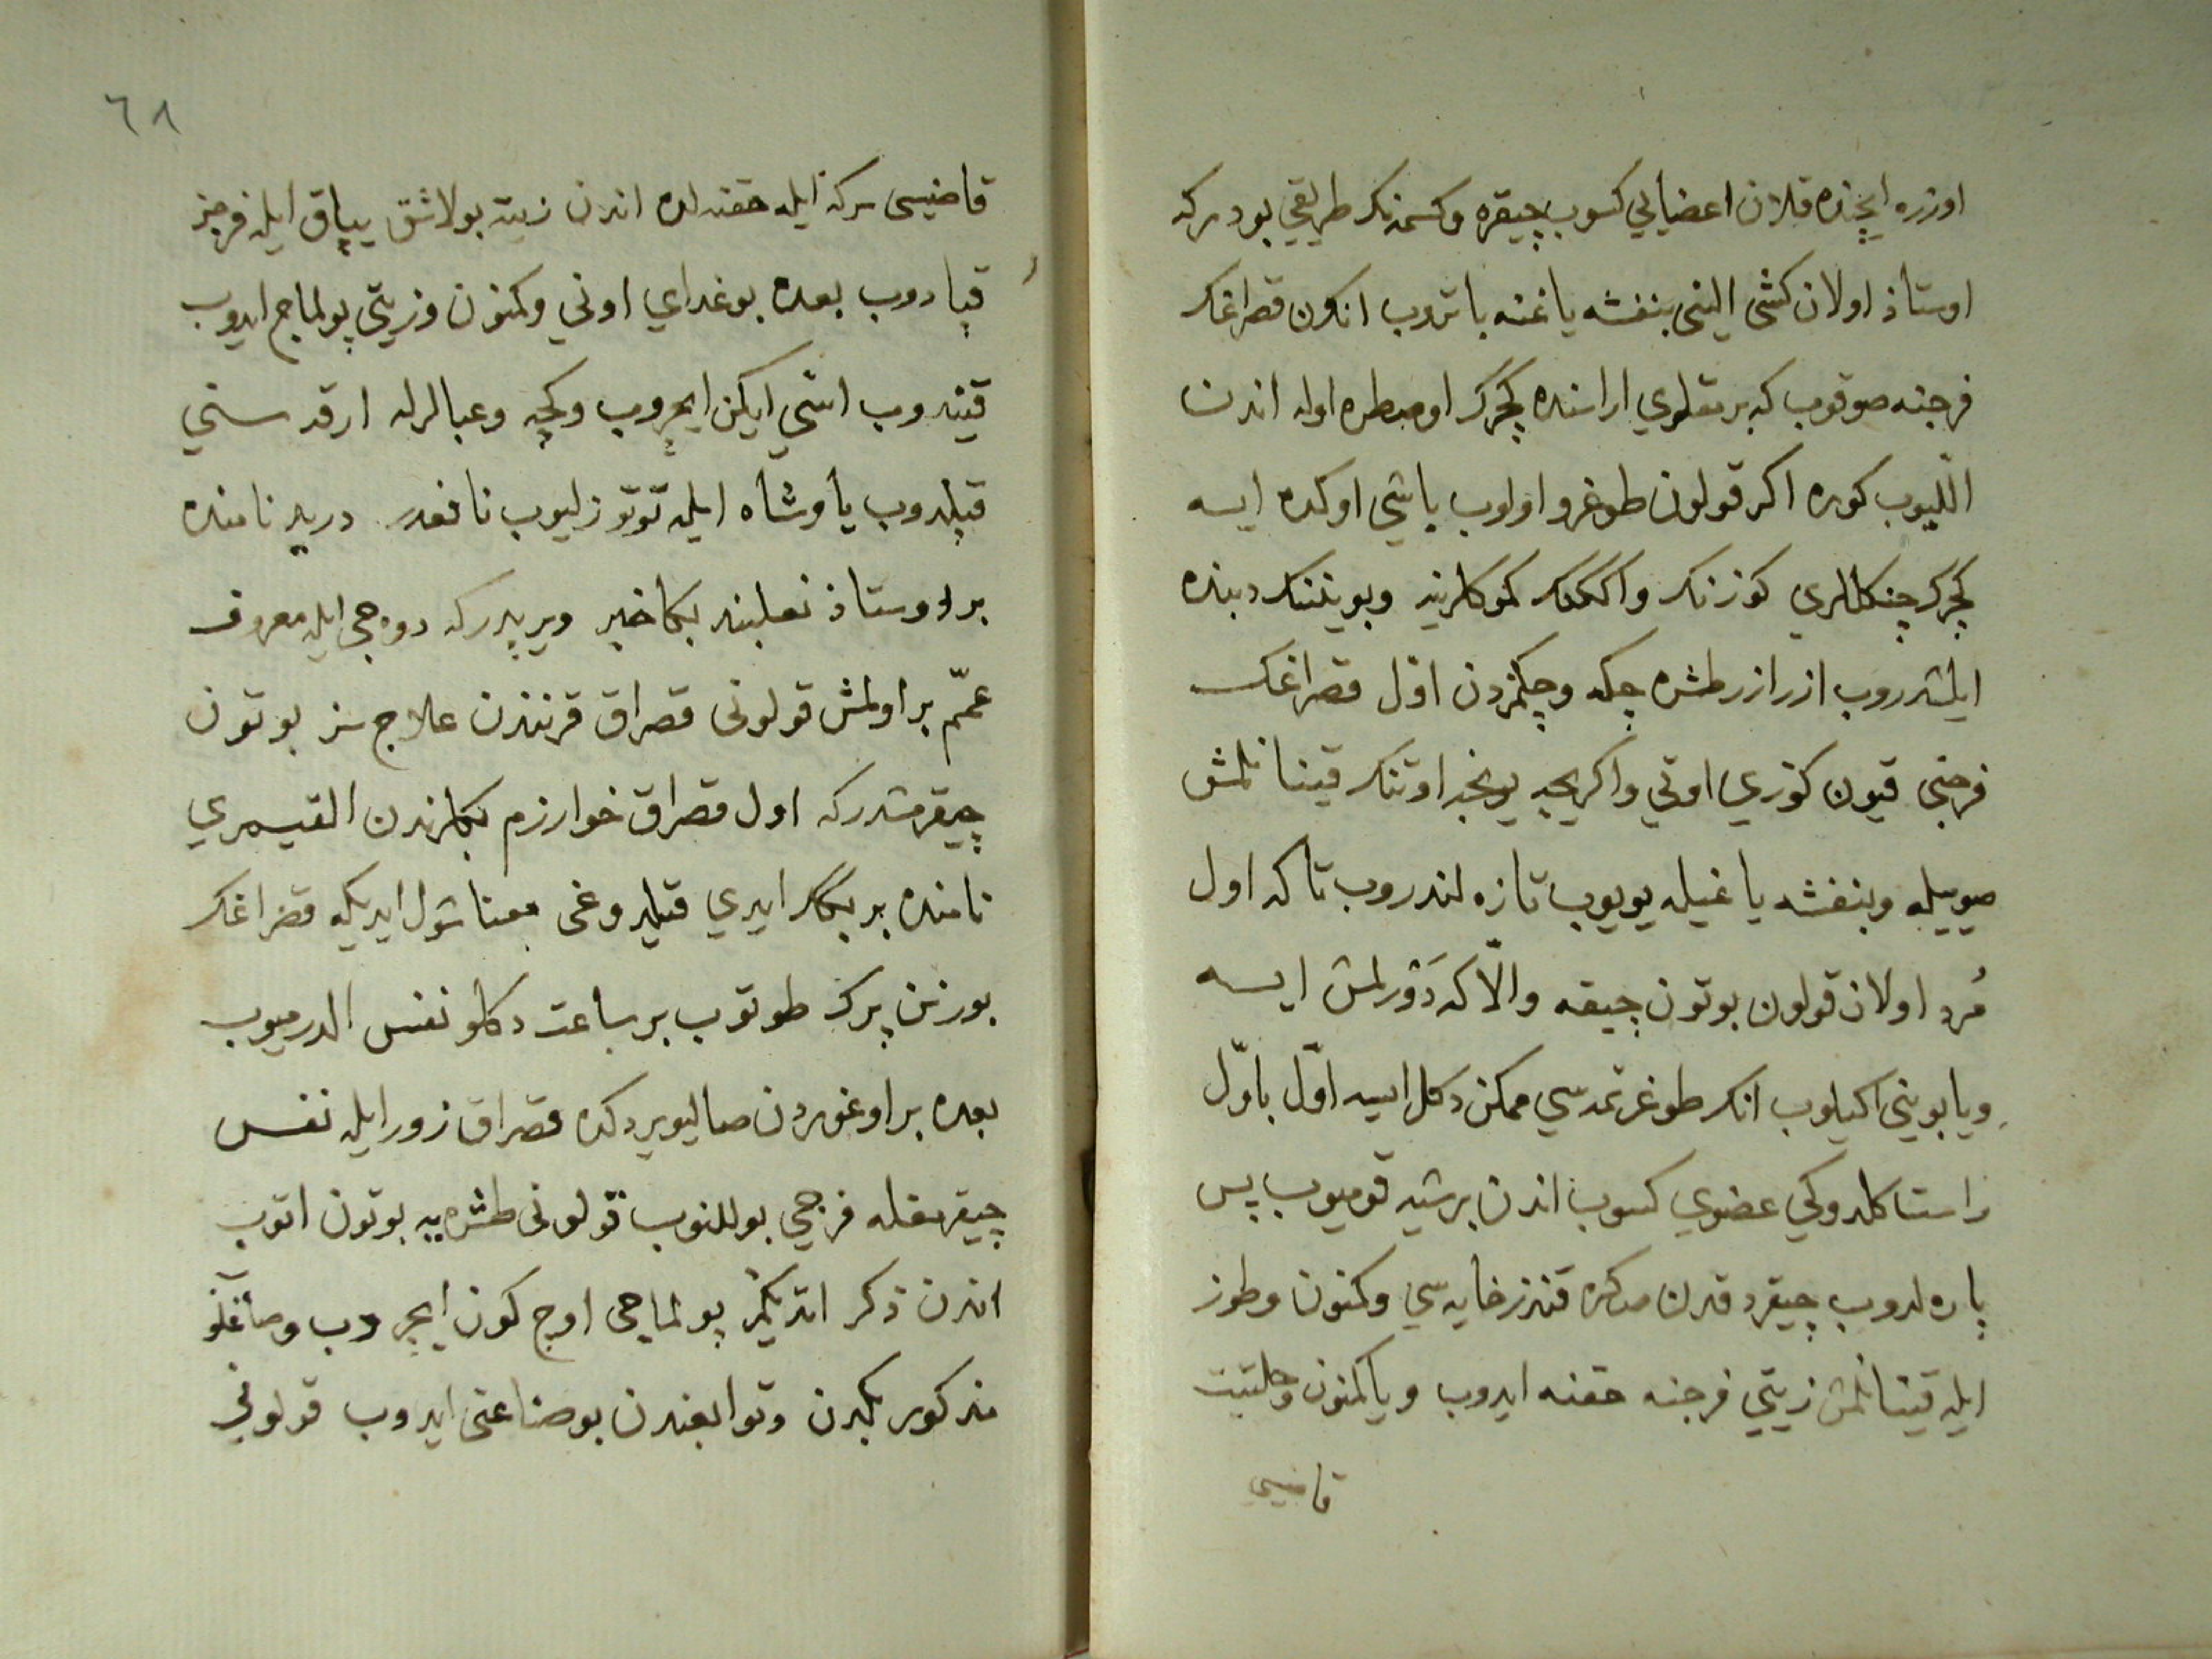 اوزره ایچنده قلان اعضایی کسوب چیقره وکسمنک طریقی بودرکه
اوستاذ اولان کشی الینی بنفشه یاغنه باتروب انکون قصراغک
فرجنه صوقوب که برمقلری اراسنده کجرک اوصطره اوله اندن
اللیوب کوره اکر قولون طوغرو اولوب باشی اوکده ایسه
کجرک چنکاللری کوزنک واکنک کموکلرینه وبویننک دیبنده
ایلشدروب ازر ازر طشره چکه وچکمزدن اوّل قصراغک
فرجنی قیون کوزی اوتی واکریجه یونجه اوتنک قینانلمش
صوییله وبنفشه یاغیله یویوب تازه لندروب تا که اول
مُرد اولان قولون بوتون چیقه والّا که دَوْرلمش ایسه
ویا بوینی اکیلوب انک طوغرتمه سی ممکن دکل ایسه اوّل باوّل
راست کلدوکی عضوی کسوب اندن برشیه قومیوب پس
پاره لدوب چیقردقدن صکره قندز خایه سی وکمنون وطوز
ایله قینانلمش زیتی فرجنه حقنه ایدوب ویا کمنون وحلتیت
قاضیسی
٦٨
قاضیسی سرکه ایله حقنه لده اندن زیته بولاشق یپاق ایله فرجن
قپادوب بعده بوغدای اونی وکمنون وزیتی بولماج ایدوب
قیندوب اسّی ایکن ایچروب وکچه وعبالرله ارقه سنی
قپلدوب یاوشاه ایله توتوزلیوب نافعدر درید نامنده
بر اوستاذ نعلبند بکا خبر ویریدرکه دوه جی ایله معروف
عمّم بر اولمش قولونی قصراق قرنندن علاج سز بوتون
چیقرمشدرکه اول قصراق خوارزم بکلرندن القیمری
نامنده بر بکک ایدی قیلدوغی معنا شول ایدیکه قصراغک
بورنن پرک طوتوب بر ساعت دکلو نفس الدرمیوب
بعده بر اوغوردن صالیویردکده قصراق زور ایله نفس
چیقرمغله فرجی بوللنوب قولونی طشره یه بوتون اتوب
اندن ذکر اتدیکمز بولماجی اوچ کون ایچروب وصاغلو
مذکور بکدن وتوابعندن بو صناعتی ایدوب قولونی